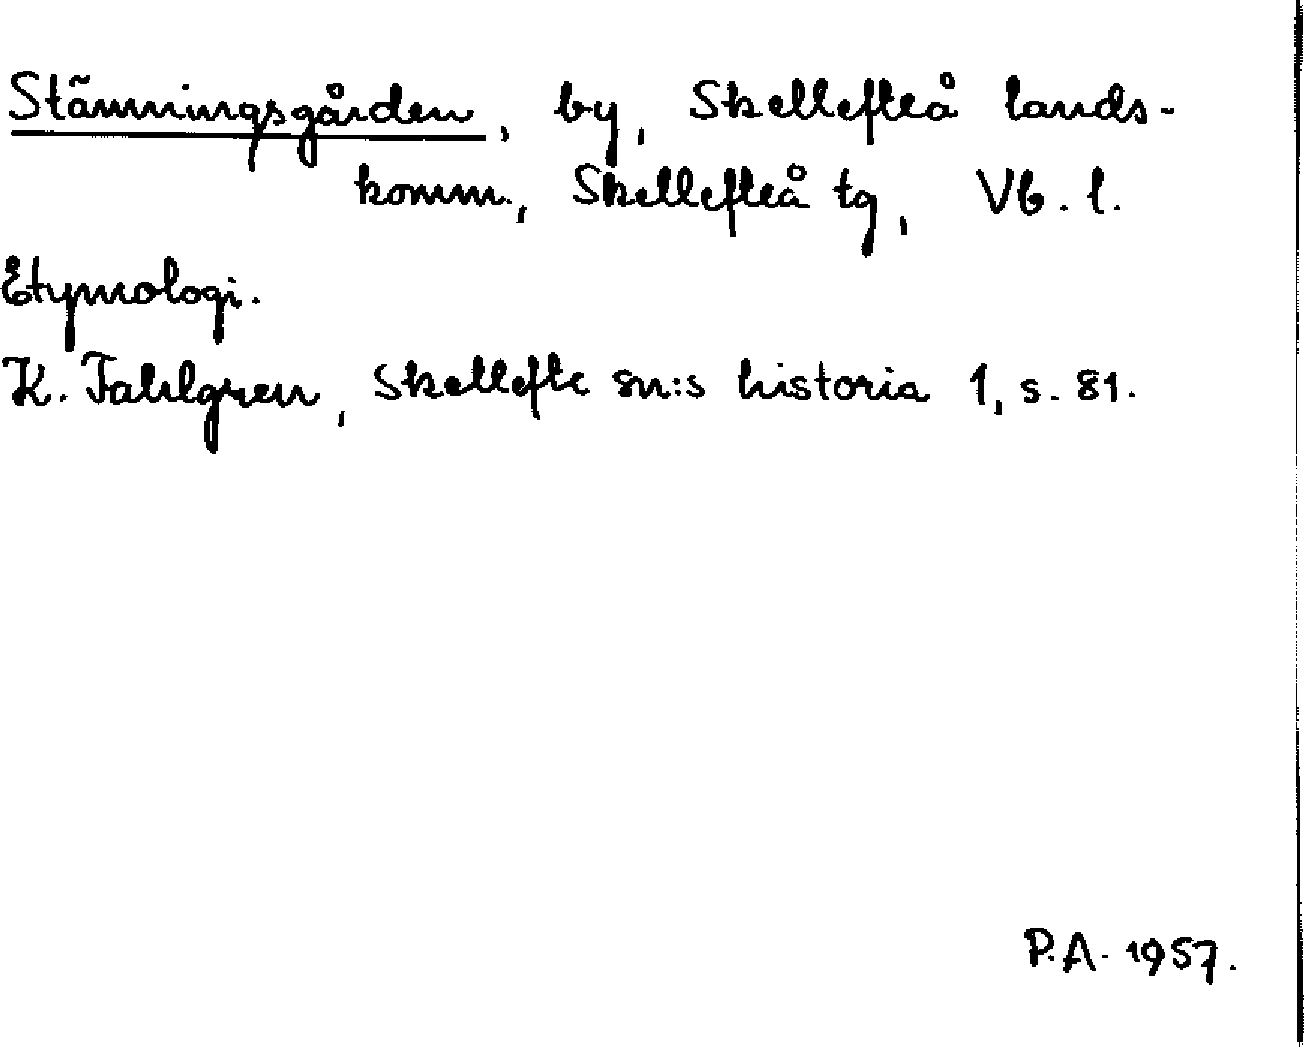 Stämningsgården, by, Skellefteå lands-
komm., Skellefteå tg, Vb. l.
Etymologi.
K. Fahlgren, Skellefte sn:s historia 1, s. 81.
P.A. 1957.